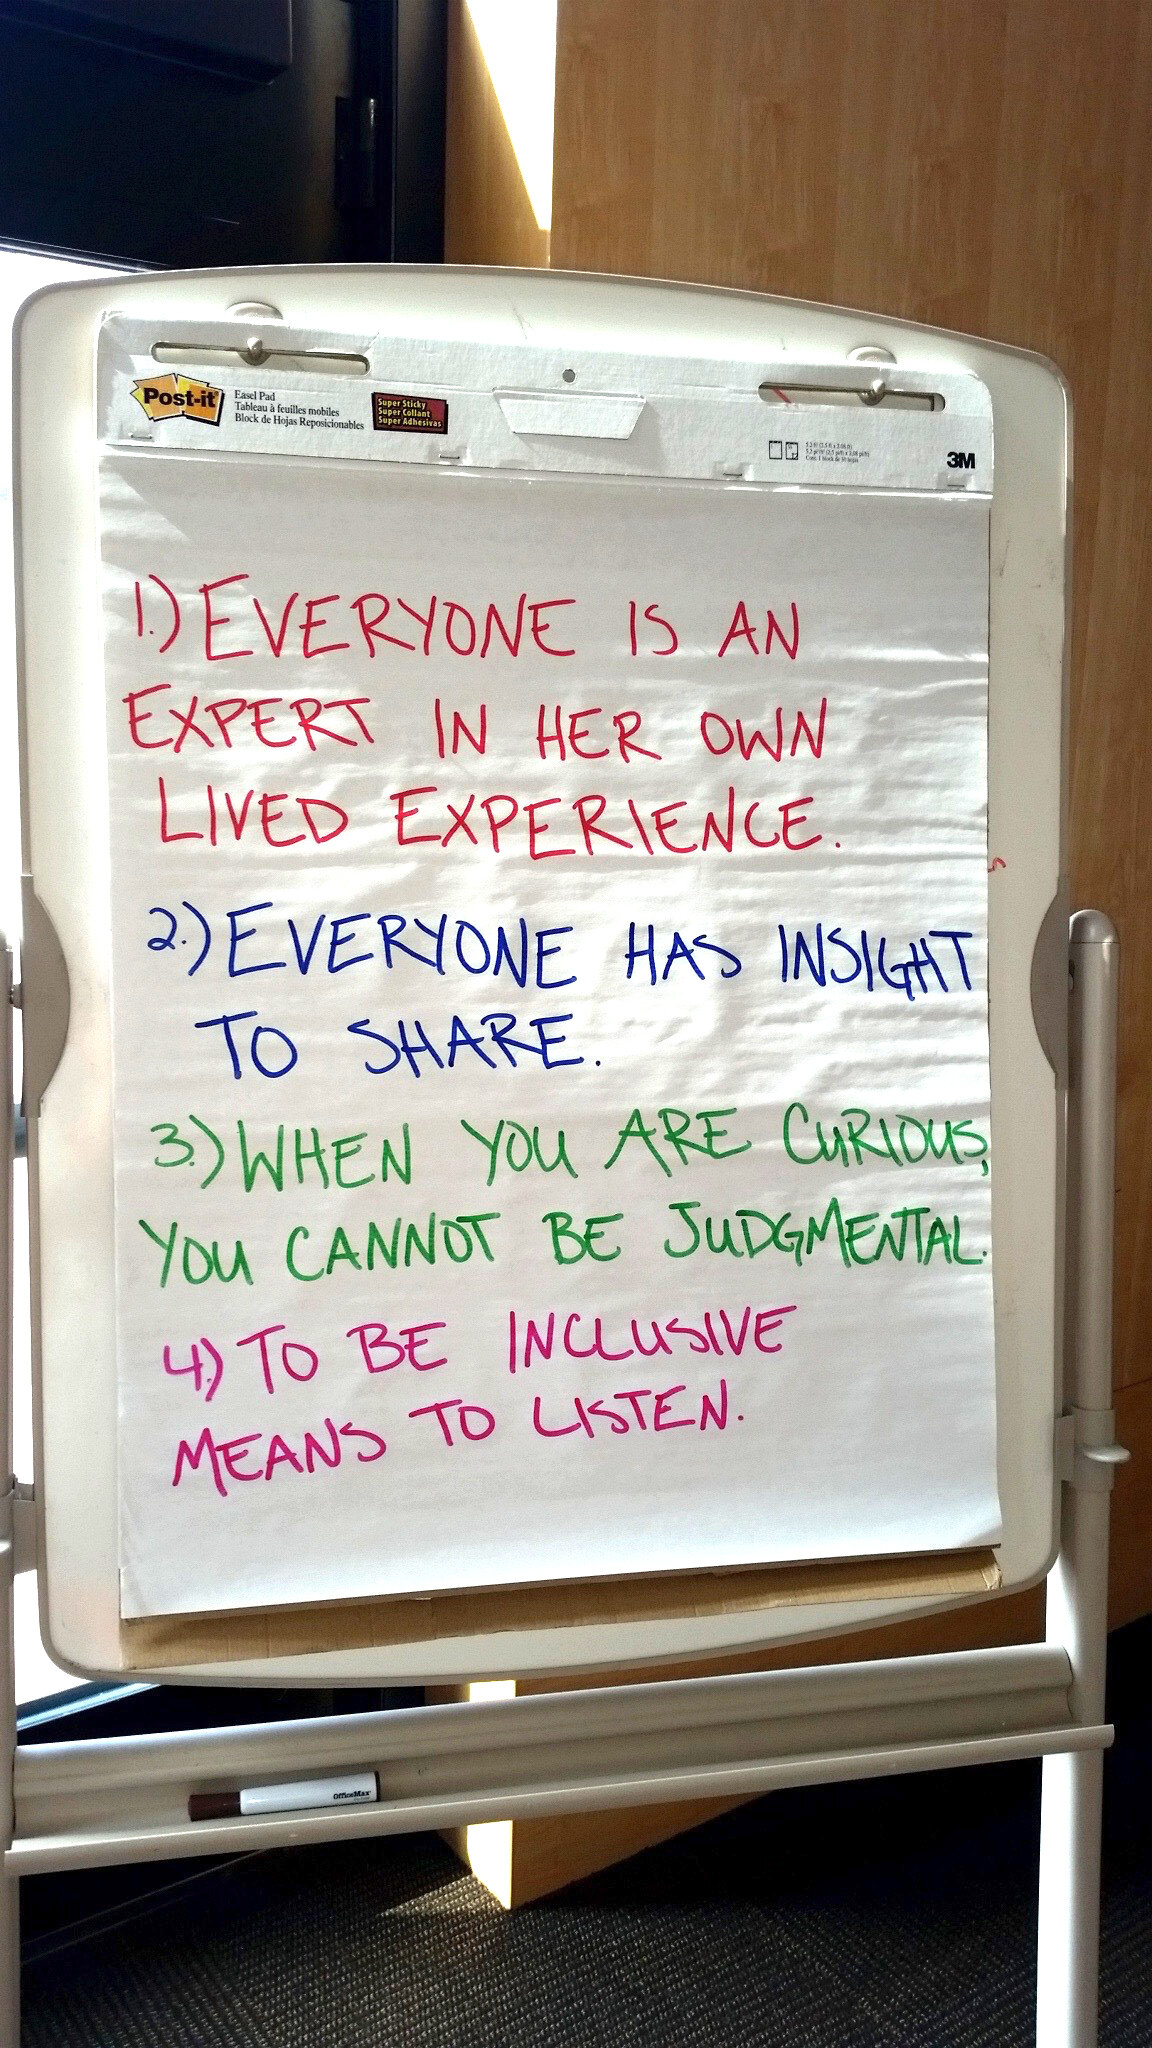 Post-it
Easel Pad
Tableau à feuilles mobiles
Block de Hojas Reposicionables
Super Sticky
Super Collant
Super Adhesivas
3M
1.) EVERYONE IS AN
EXPERT IN HER OWN
LIVED EXPERIENCE.
2.) EVERYONE HAS INSIGHT
TO SHARE.
3.) WHEN YOU ARE CURIOUS,
YOU CANNOT BE JUDGMENTAL.
4.) TO BE INCLUSIVE
MEANS TO LISTEN.
OfficeMax